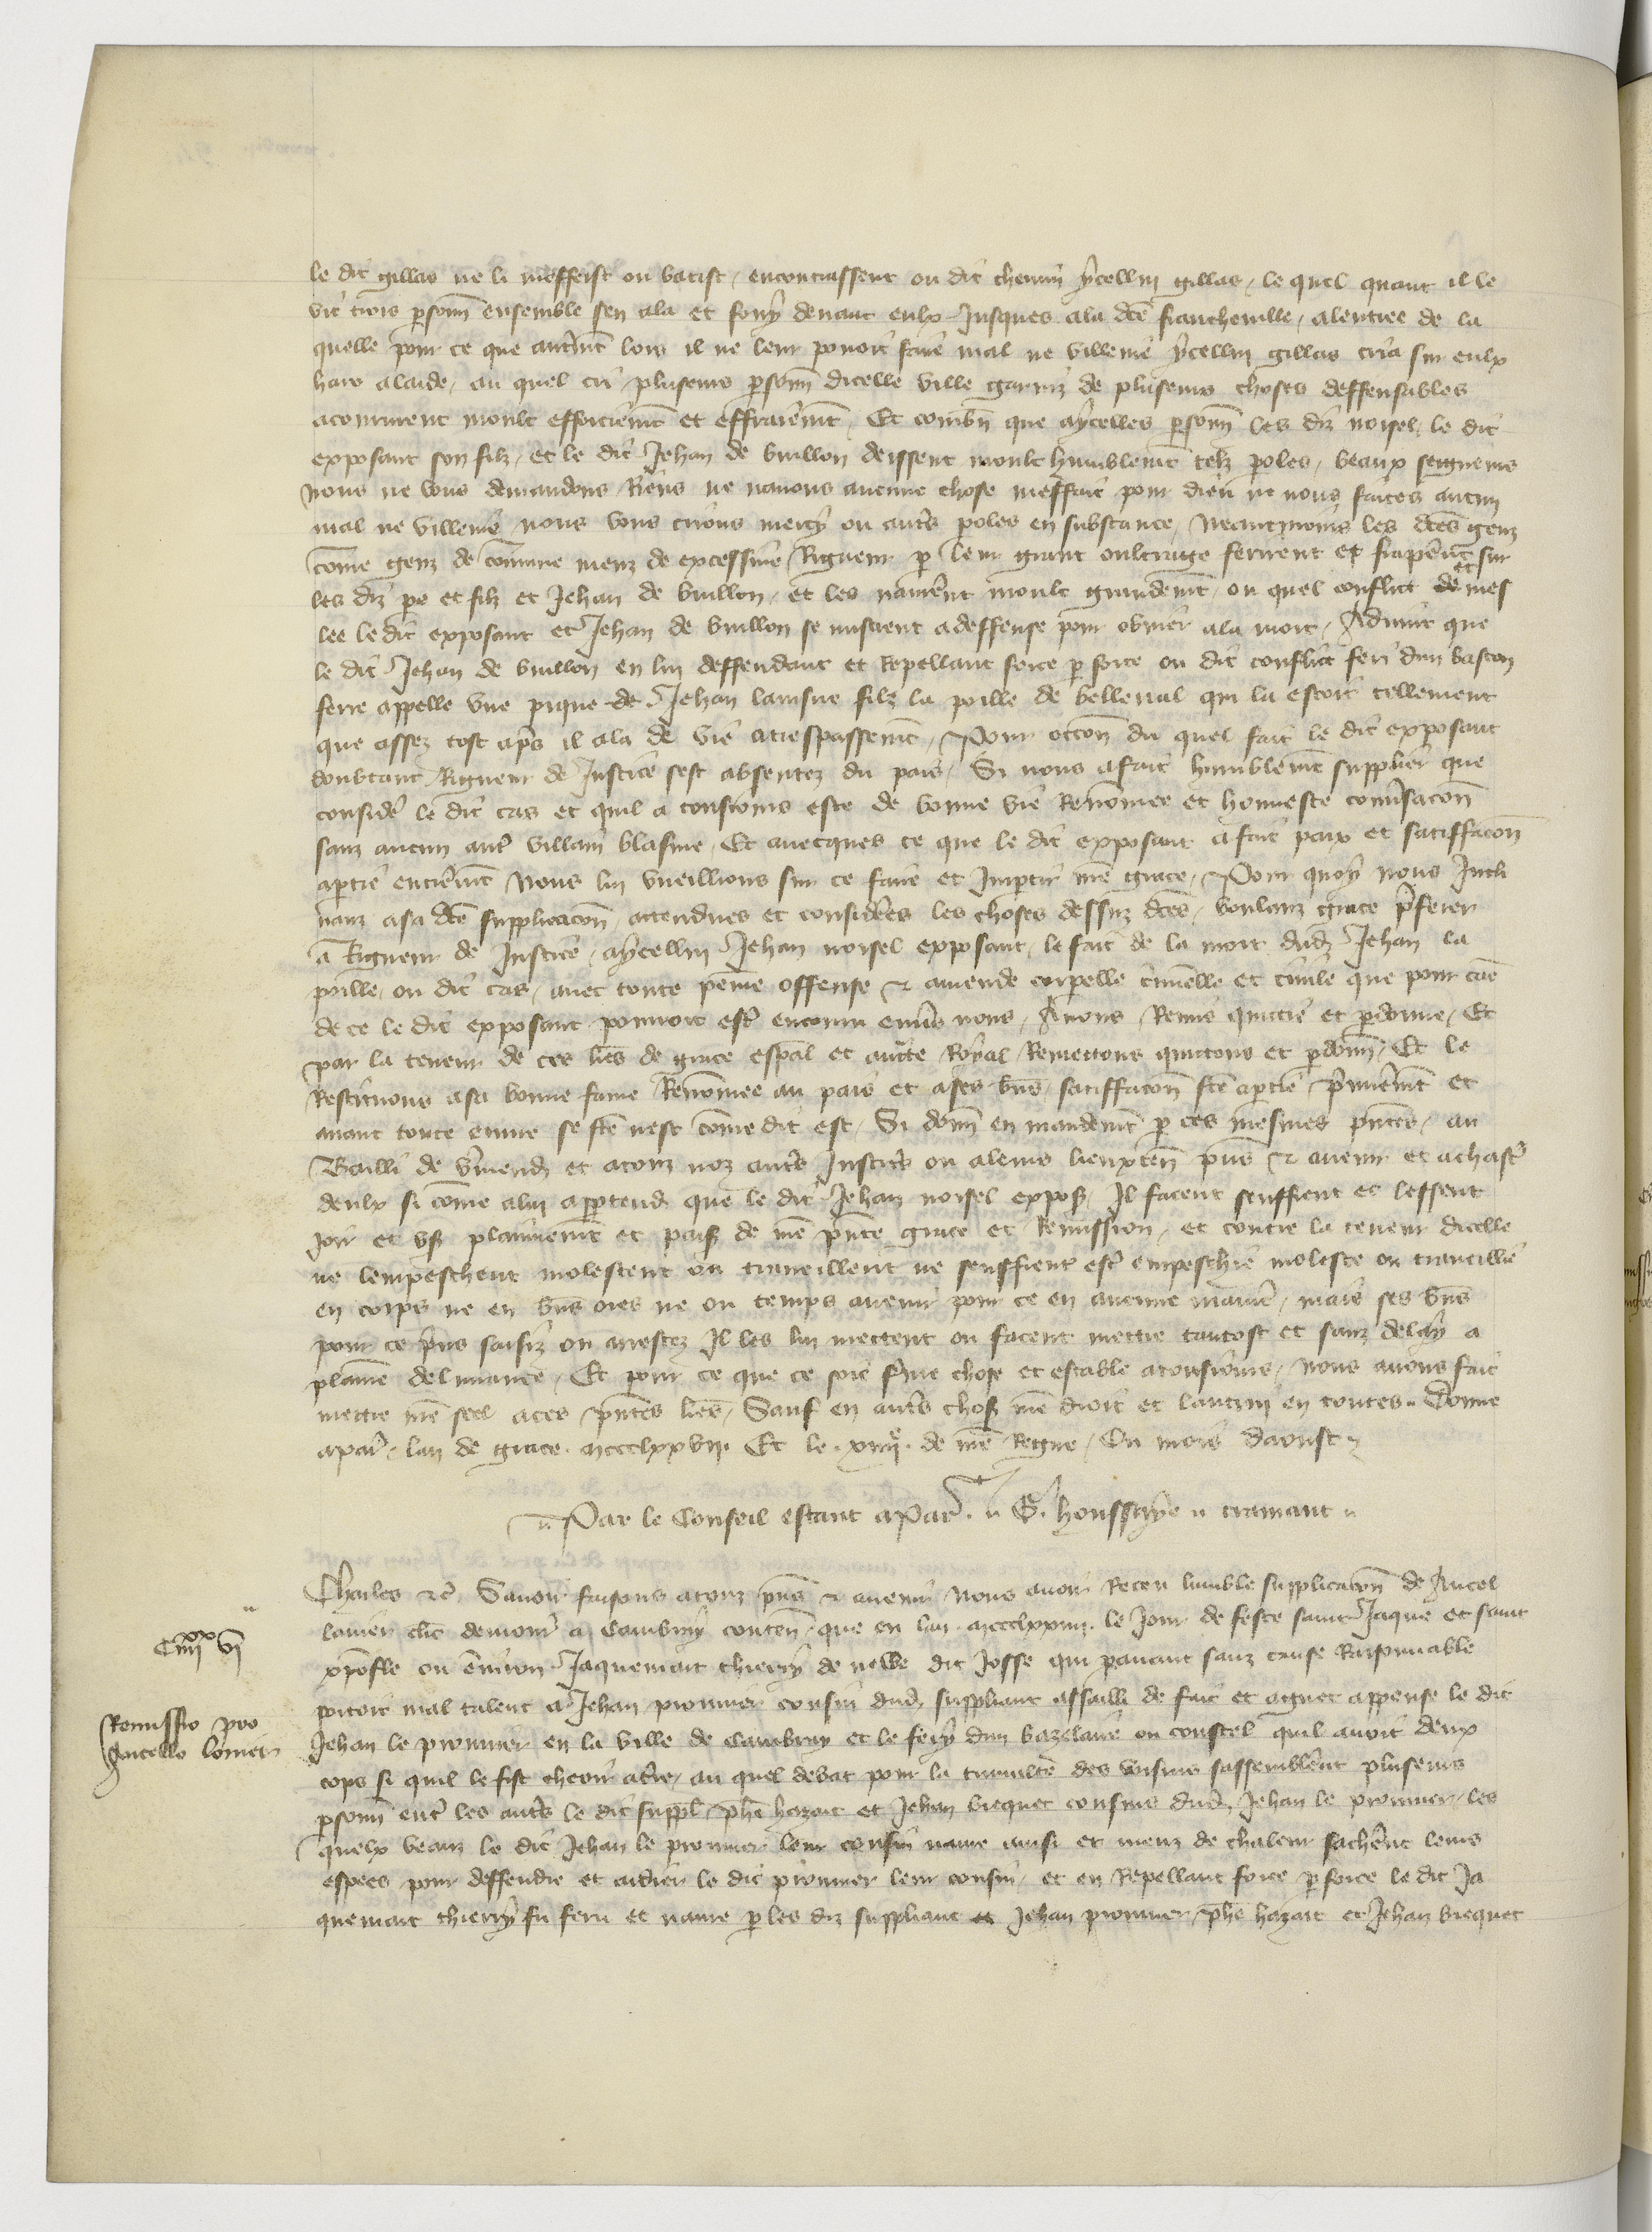 le dit gillas ne li meffeist ou batist, encontrassent ou dit chemin ycellui gillas, le quel quant il le
vit trois personn ensemble sen ala et fouy devant eulx Jusques ala dce francheville, alentree de la
quelle pour ce que autremt lors il ne leur povoit faire mal ne villenie ycellui gillas cria sur eulx
haro alaide, au quel cri plusieurs personn dicelle ville garniz de plusieurs choses deffensables
acoururent moult efforciemt et effraiemt, Et combn que aycelles personn les diz noisel, le dit
exposant son filz, et le dit Jehan de buillon deissent moult humblemt telz paroles, beaux seigneurs
nous ne vous demandons Riens ne navons aucune chose meffait pour dieu ne nous faites aucun
mal ne villenie nous vous crions mercy ou autrs paroles en substance, Neantmoins les dces genz
come genz de commune meuz de excessive Rigueur par leur grant oultrage ferirent et fraperent sur
les diz pere et filz et Jehan de buillon, et les navrerent moult grandemt, ou quel conflict et mes
lee le dit exposant et Jehan de buillon se mistrent a deffense pour obvier ala mort, Advint que
le dit Jehan de buillon en lui deffendant et Repellant force par force ou dit conflict feri dun baston
ferre appelle une pique Jehan lainsne filz la poille de belleval qui la estoit tellement
que assez tost apres il ala de vie atrespassemt, Pour occon du quel fait le dit exposant
doubtant Rigueur de Justice sest absentez du pais, Si nous a fait humblemt supplier que
consider le dit cas et quil a tousjours este de bonne vie Renommee et honneste conversacon
sanz aucun autre villain blasme, Et avecques ce que le dit exposant a fait paix et satiffacon
apartie entieremt Nous lui vueillions sur ce faire et Impartir nre grace, Pour quoy nous Incli
nanz asa dce supplicacon, attendues et considerees les choses dessuz dces, voulanz grace preferer
a Rigueur de Justice, aycellui Jehan noisel exposant, le fait de la mort dud Jehan la
poille, ou dit cas, avec toute peine offense & amende corporelle criminelle et civile que pour cause
de ce le dit exposant pourroit estre encouru envers nous, Avons Remis quictie et pardonne, Et
par la teneur de ces lres de grace espal et aucte Royal Remettons quictons et pardonn, Et le
Restituons asa bonne fame Renommee au pais et ases bns, satiffacon fce apartie premieremt et
avant toute euvre se fce nest come dit est, Si donn en mandemt par ces mesmes pntes, au
Bailli de vermend et atouz noz autrs Justicrs ou aleurs lieuxten pns & avenir et achascr
deulx si come alui appartend que le dit Jehan noisel expos, Il facent seuffrent et lessent
Joir et us plainnemt et pais de nre pnte grace et Remission, et contre la teneur dicelle
ne lempeschent molestent ou traveillent ne seuffrent estre empeschie moleste ou traveillie
en corps ne en bns ores ne ou temps avenir pour ce en aucune maniere, mais ses bns
pour ce prins saisiz ou arrestez Il les lui mettent ou facent mettre tantost et sanz delay a
plaine delivrance, Et pour ce que ce soit ferme chose et estable atousjours, Nous avons fait
mettre nre seel aces pntes lres, Sauf en autrs chos nre droit et lautrui en toutes. Donne
apar, lan de grace. mccclxxvii. Et le .xiiiie. de nre Regne, Ou mois daoust
Par le Conseil estant apar. G. houssaye tramant
Charles &c Savoir faisons atouz pns & avenir Nous avoir Receu lumble supplicacon de Ancel
lomer clerc demour a Cambray conten, que en lan mccclxxiiii. le Jour de feste saint Jaque et saint
xpofle ou environ Jaquemart thierry de nelle dit Josse qui paravant sanz cause Raisonnable
portoit mal talent a Jehan pronnier cousin dud suppliant assailli de fait et aguet appense le dit
Jehan le pronnier en la ville de Cambray et le fery dun bazelaire ou coustel quil avoit deux
cops si quil le fist cheoir aterre, au quel debat pour la tumulte des voisins sassemblerent plusieurs
personn entre les autrs le dit suppl phe hazart et Jehan briquet cousins dud Jehan le pronnier, les
quelx veanz le dit Jehan le pronnier leur cousin navre ainsi et meuz de chaleur sacherent leurs
espees pour deffendre et aidier le dit pronnier leur cousin, et en Repellant force par force le dit Ja
quemart thierry fu feru et navre par les diz suppliant et Jehan pronnier, phe hazart et Jehan briquet
C iiiixx vi
Remissio pro
Ancello lomer